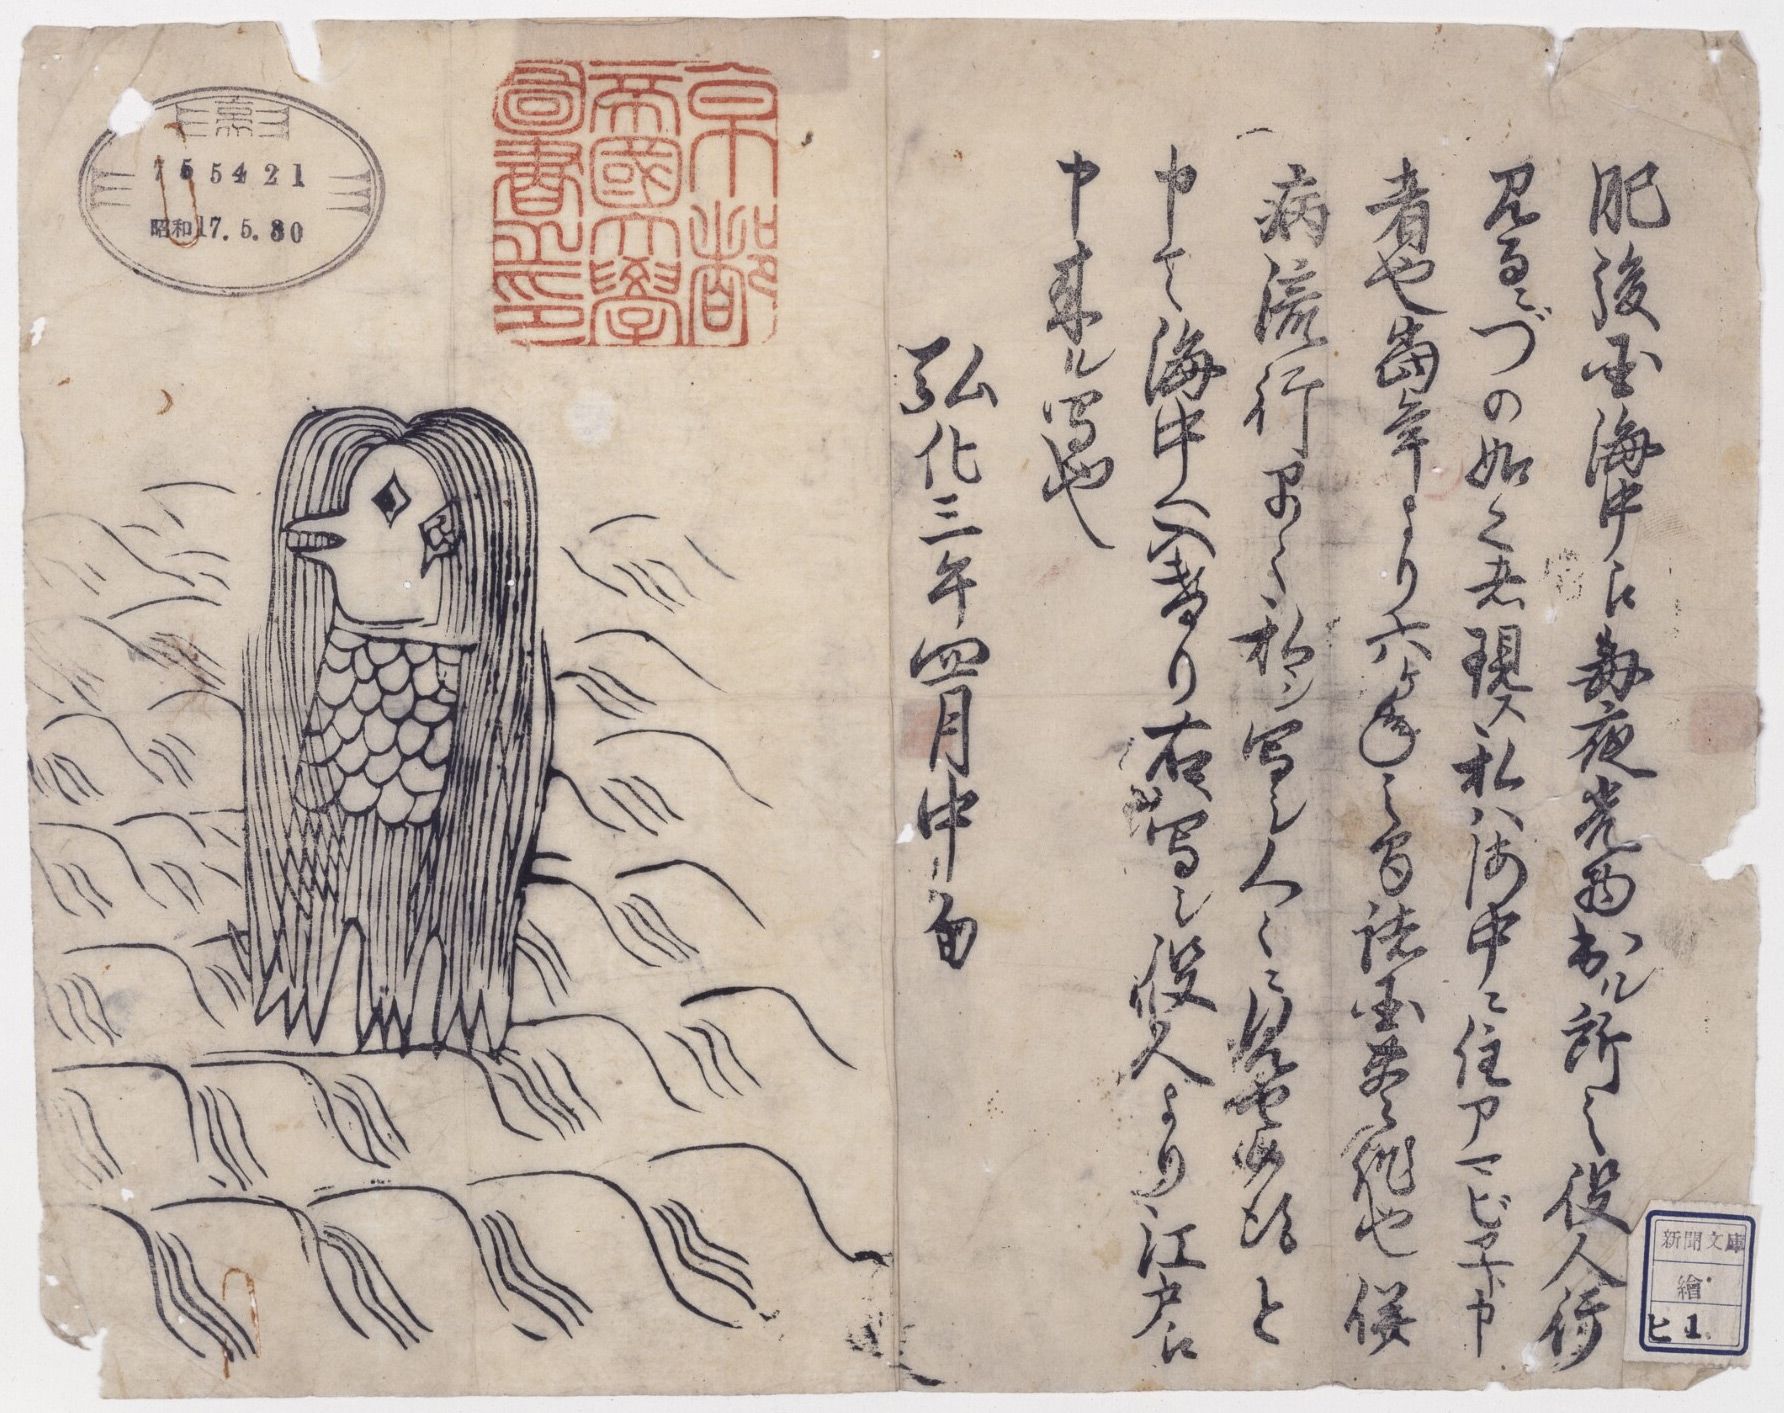 肥後国海中江毎夜光物出ル所之役人行
見るニづの如く者現ス私ハ海中ニ住アマビヱト申
者也當年より六ヶ年之間諸国豊作也併
病流行早々私シ写シ人々ニ見せ候得と
申て海中へ入けり右写シ役人より江戸江
申来ル写也
弘化三年四月中旬
京都
帝國大學
圖書之印
755421
昭和17.5.30
新聞文庫
繪
ヒ 1.